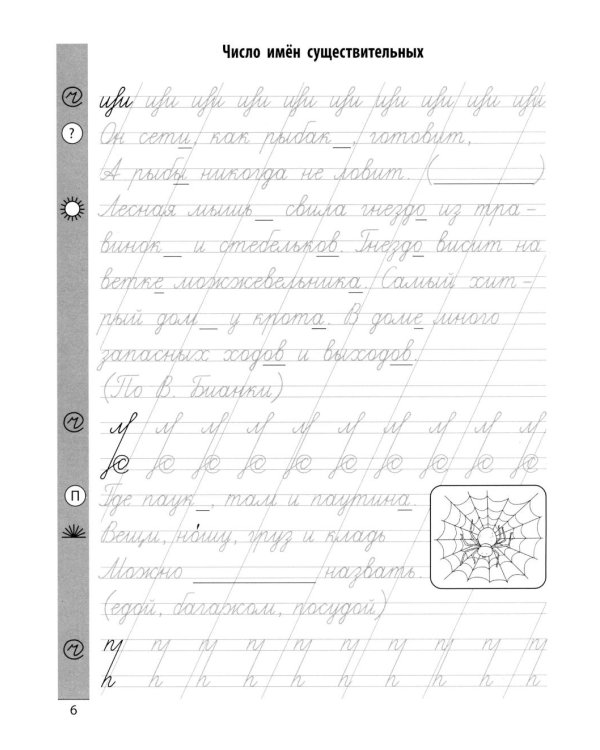 Число имён существительных
ищи ищи ищи ищи ищи ищи ищи ищи ищи ищи
? Он сети, как рыбак_, готовит,
А рыбы никогда не ловит. (__________)
Лесная мышь_ свила гнездо из тра-
винок_ и стебельков. Гнездо висит на
ветке можжевельника. Самый хит-
рый дом_ у крота. В доме много
запасных ходов и выходов.
(По В. Бианки)
П Где паук_, там и паутина.
Вещи, но́шу, груз и кладь
Можно __________ назвать.
(едой, багажом, посудой)
6